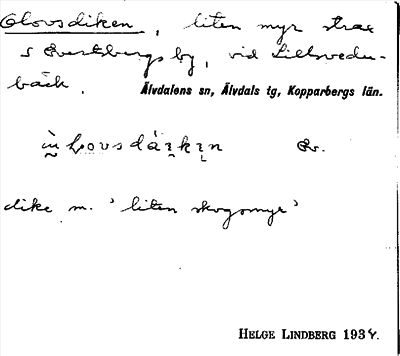 Olovsdiken, liten myr strax
s Evertsbergs by, vid Lillsvedu-
bäck. Älvdalens sn, Älvdals tg, Kopparbergs län.
Ev.
dike m. 'liten skogsmyr'
HELGE LINDBERG 1934.